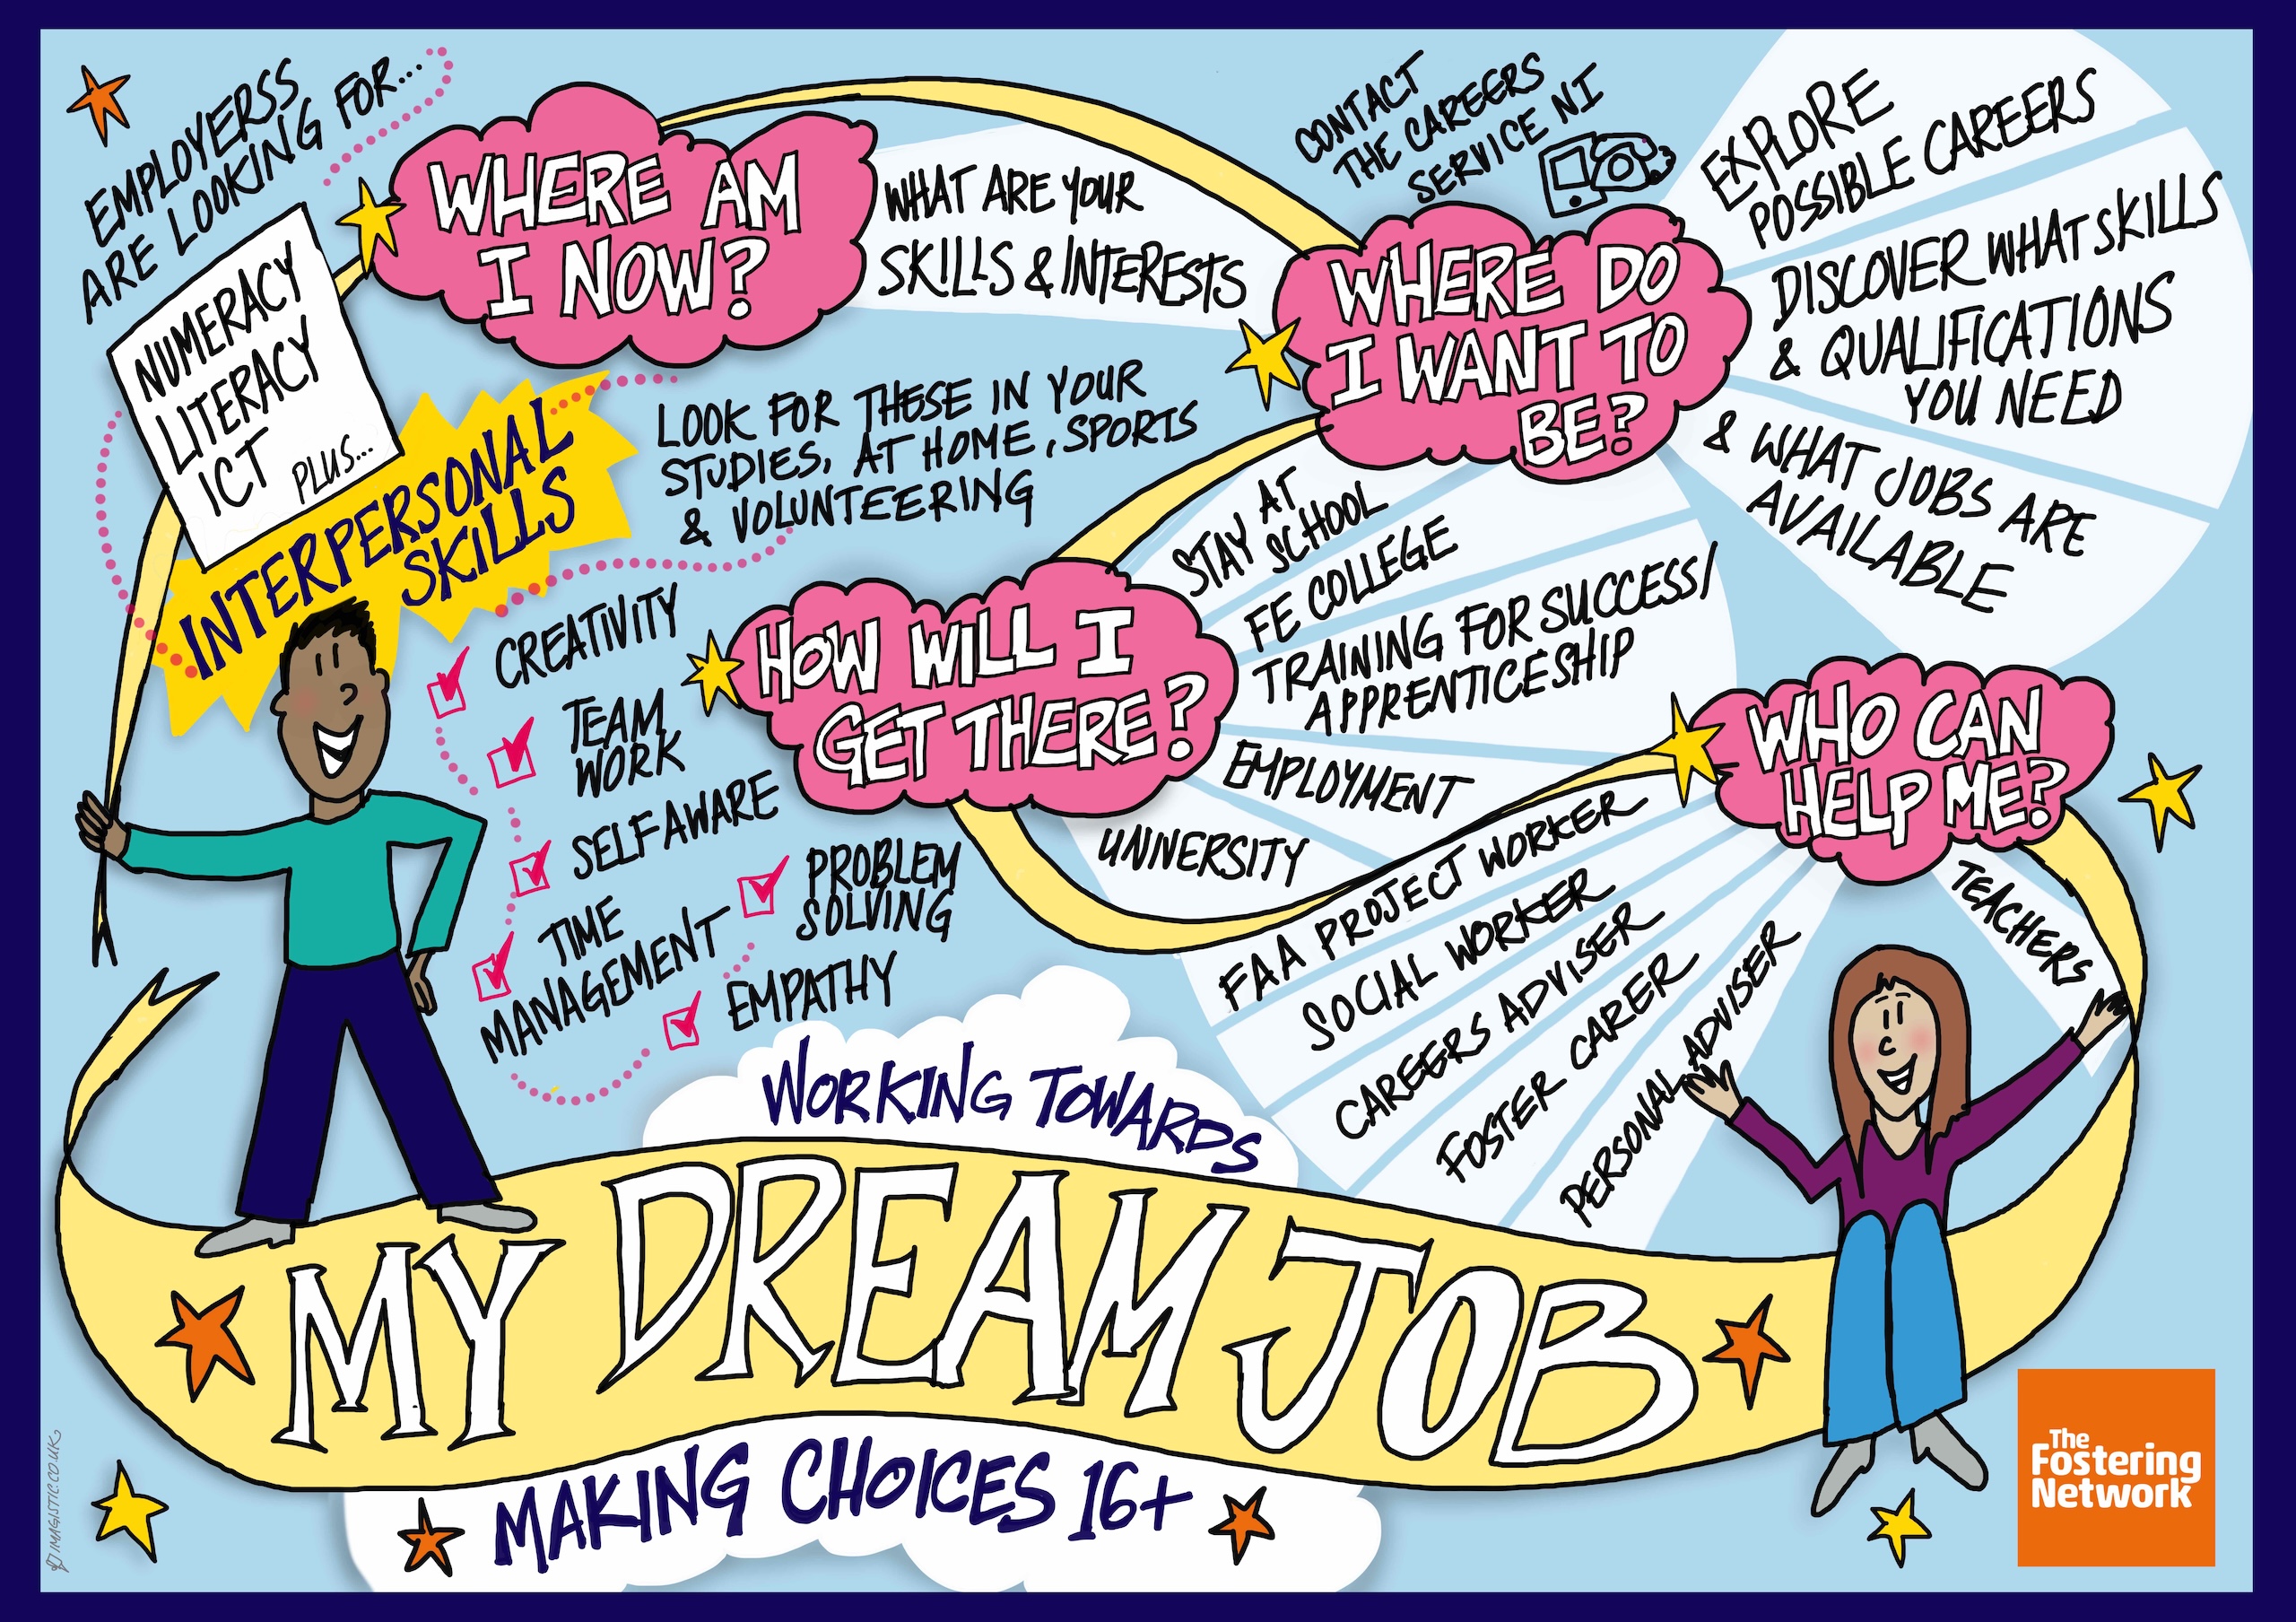 EMPLOYERSS
ARE LOOKING FOR...
NUMERACY
LITERACY
ICT PLUS...
INTERPERSONAL
SKILLS
WHERE AM
I NOW?
WHAT ARE YOUR
SKILLS & INTERESTS
LOOK FOR THESE IN YOUR
STUDIES, AT HOME, SPORTS
& VOLUNTEERING
CREATIVITY
TEAM
WORK
SELF AWARE
TIME
MANAGEMENT
PROBLEM
SOLVING
EMPATHY
CONTACT
THE CAREERS
SERVICE NI
WHERE DO
I WANT TO
BE?
EXPLORE
POSSIBLE CAREERS
DISCOVER WHAT SKILLS
& QUALIFICATIONS
YOU NEED
& WHAT JOBS ARE
AVAILABLE
HOW WILL I
GET THERE?
STAY AT
SCHOOL
FE COLLEGE
TRAINING FOR SUCCESS/
APPRENTICESHIP
EMPLOYMENT
UNIVERSITY
WHO CAN
HELP ME?
FAA PROJECT WORKER
SOCIAL WORKER
CAREERS ADVISER
FOSTER CARER
PERSONAL ADVISER
TEACHERS
WORKING TOWARDS
MY DREAM JOB
MAKING CHOICES 16+
The
Fostering
Network
IMAGISTIC.CO.UK